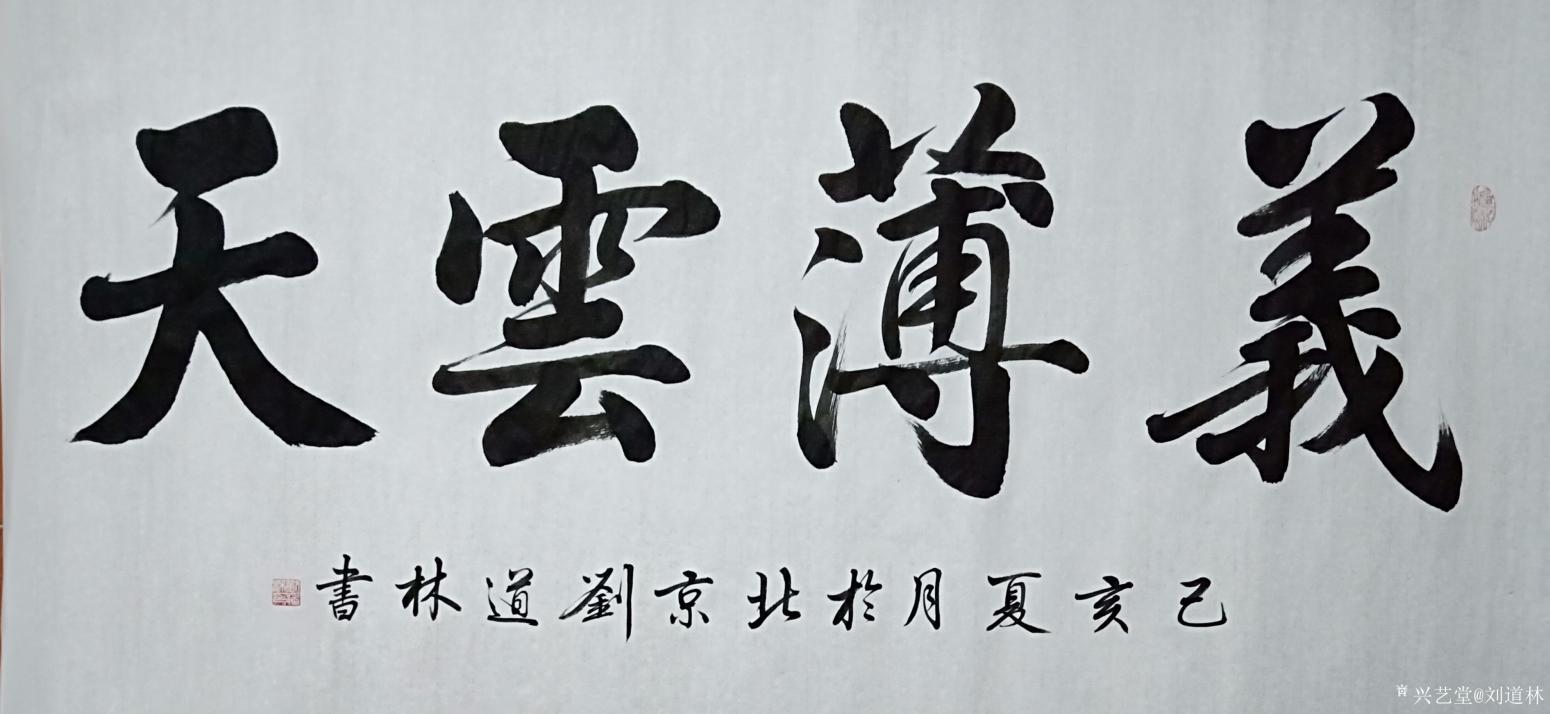 義薄雲天
己亥夏月於北京劉道林書
兴艺堂@刘道林